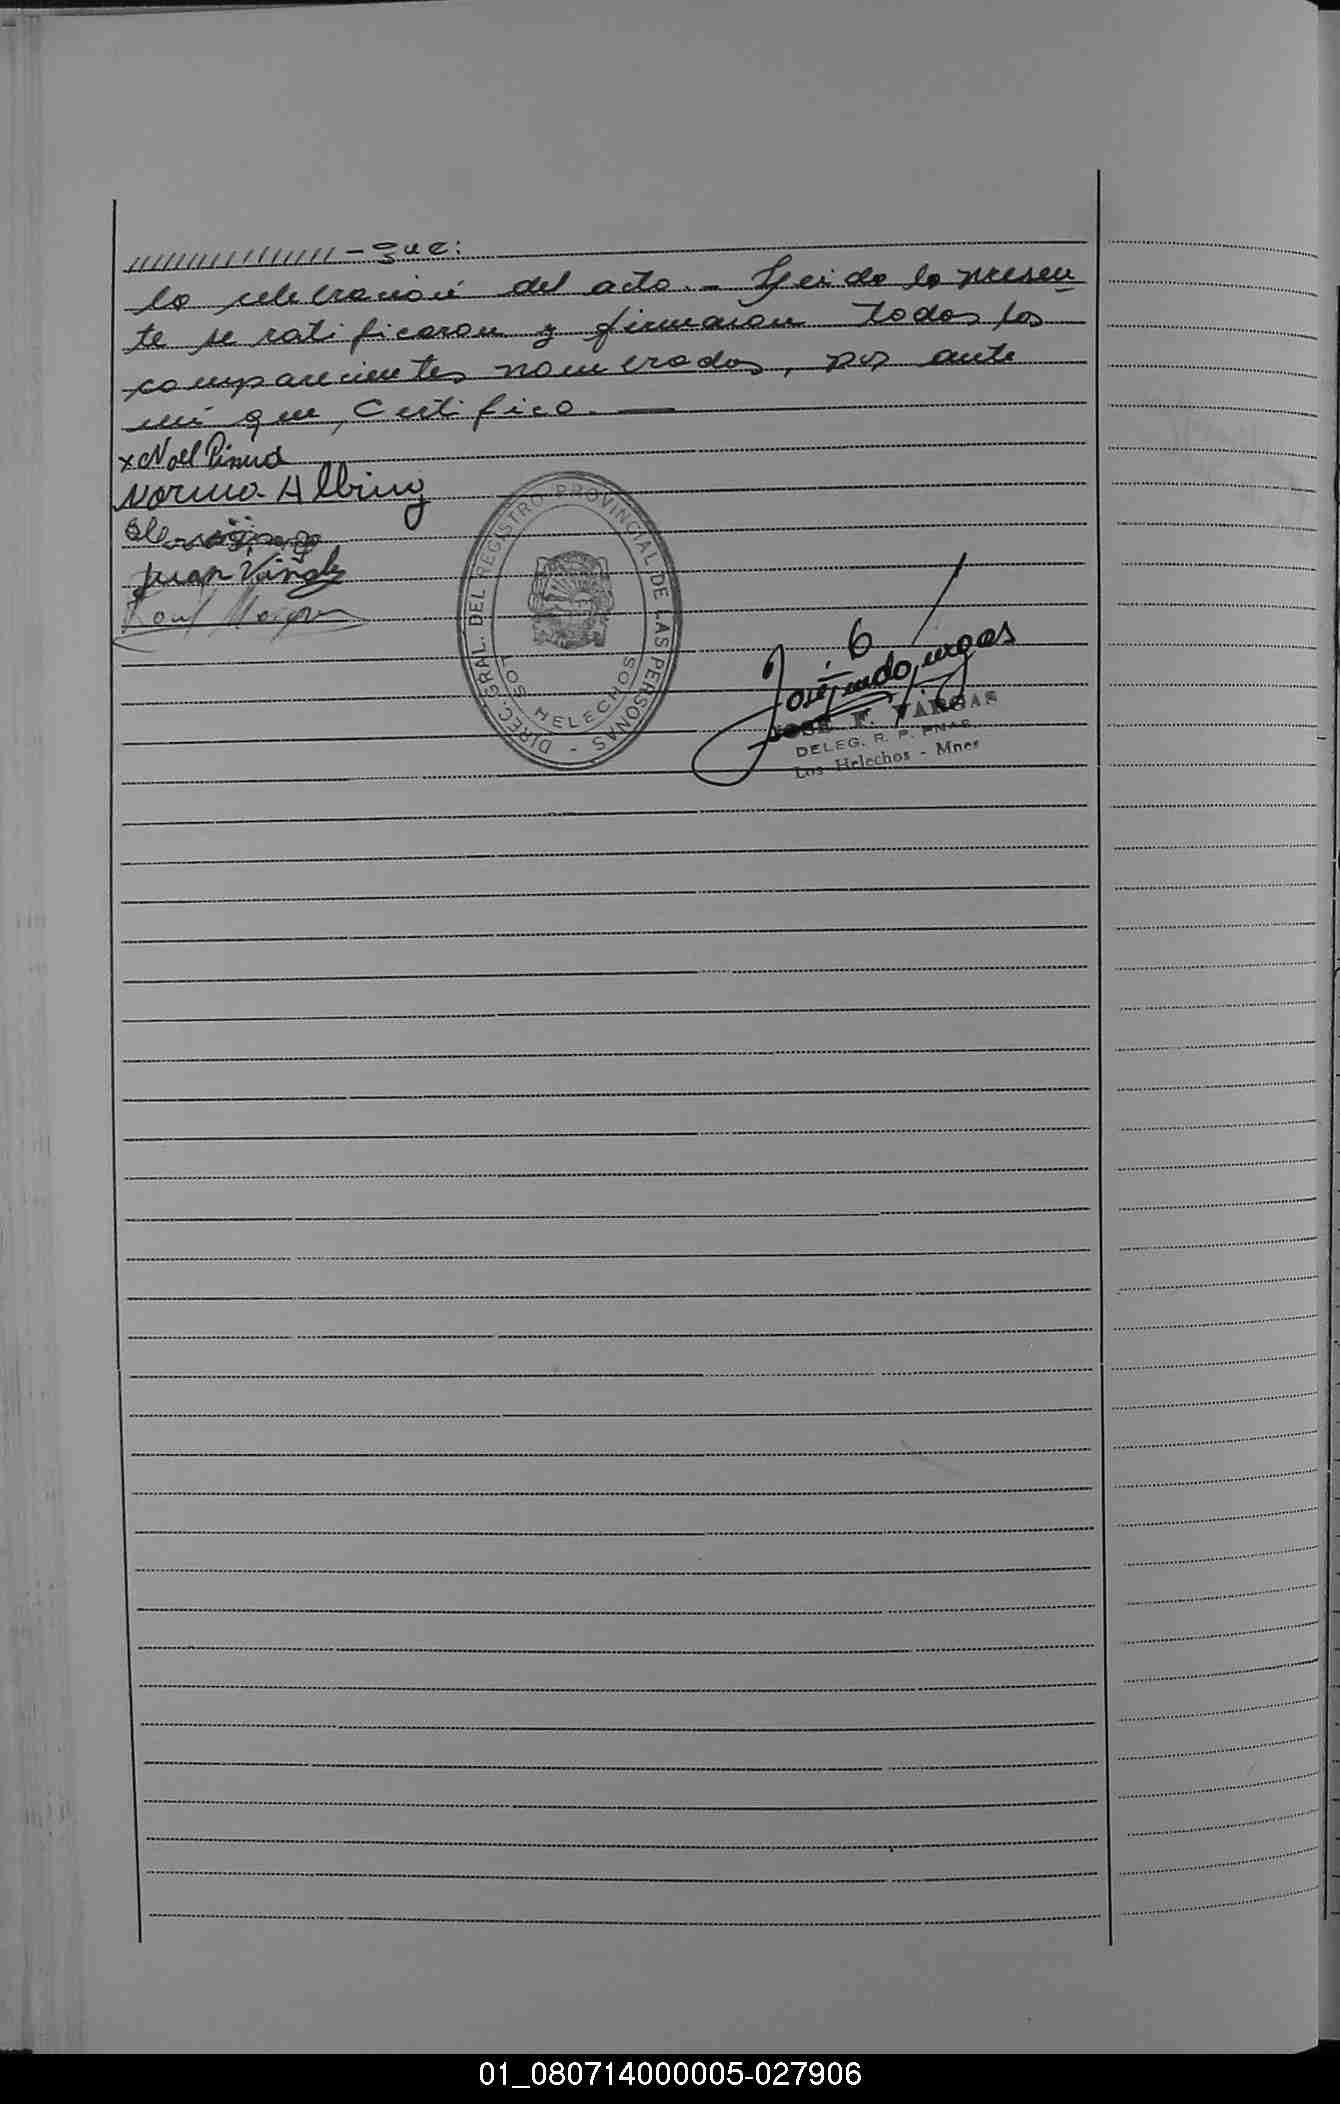 //////////////// - gue:
la celebración del acto. - Leida la presen
te se ratificaron y firmaron todos los
comparecientes nombrados, por ante
mi que, Certifico. —
x Noel
Norma Albing
Juan
Raul
DIREC. GRAL. DEL REGISTRO PROVINCIAL DE LAS PERSONAS -
LOS HELECHOS
JOSE F. VARGAS
DELEG. R. P. PNAS.
Los Helechos - Mnes
01_080714000005-027906